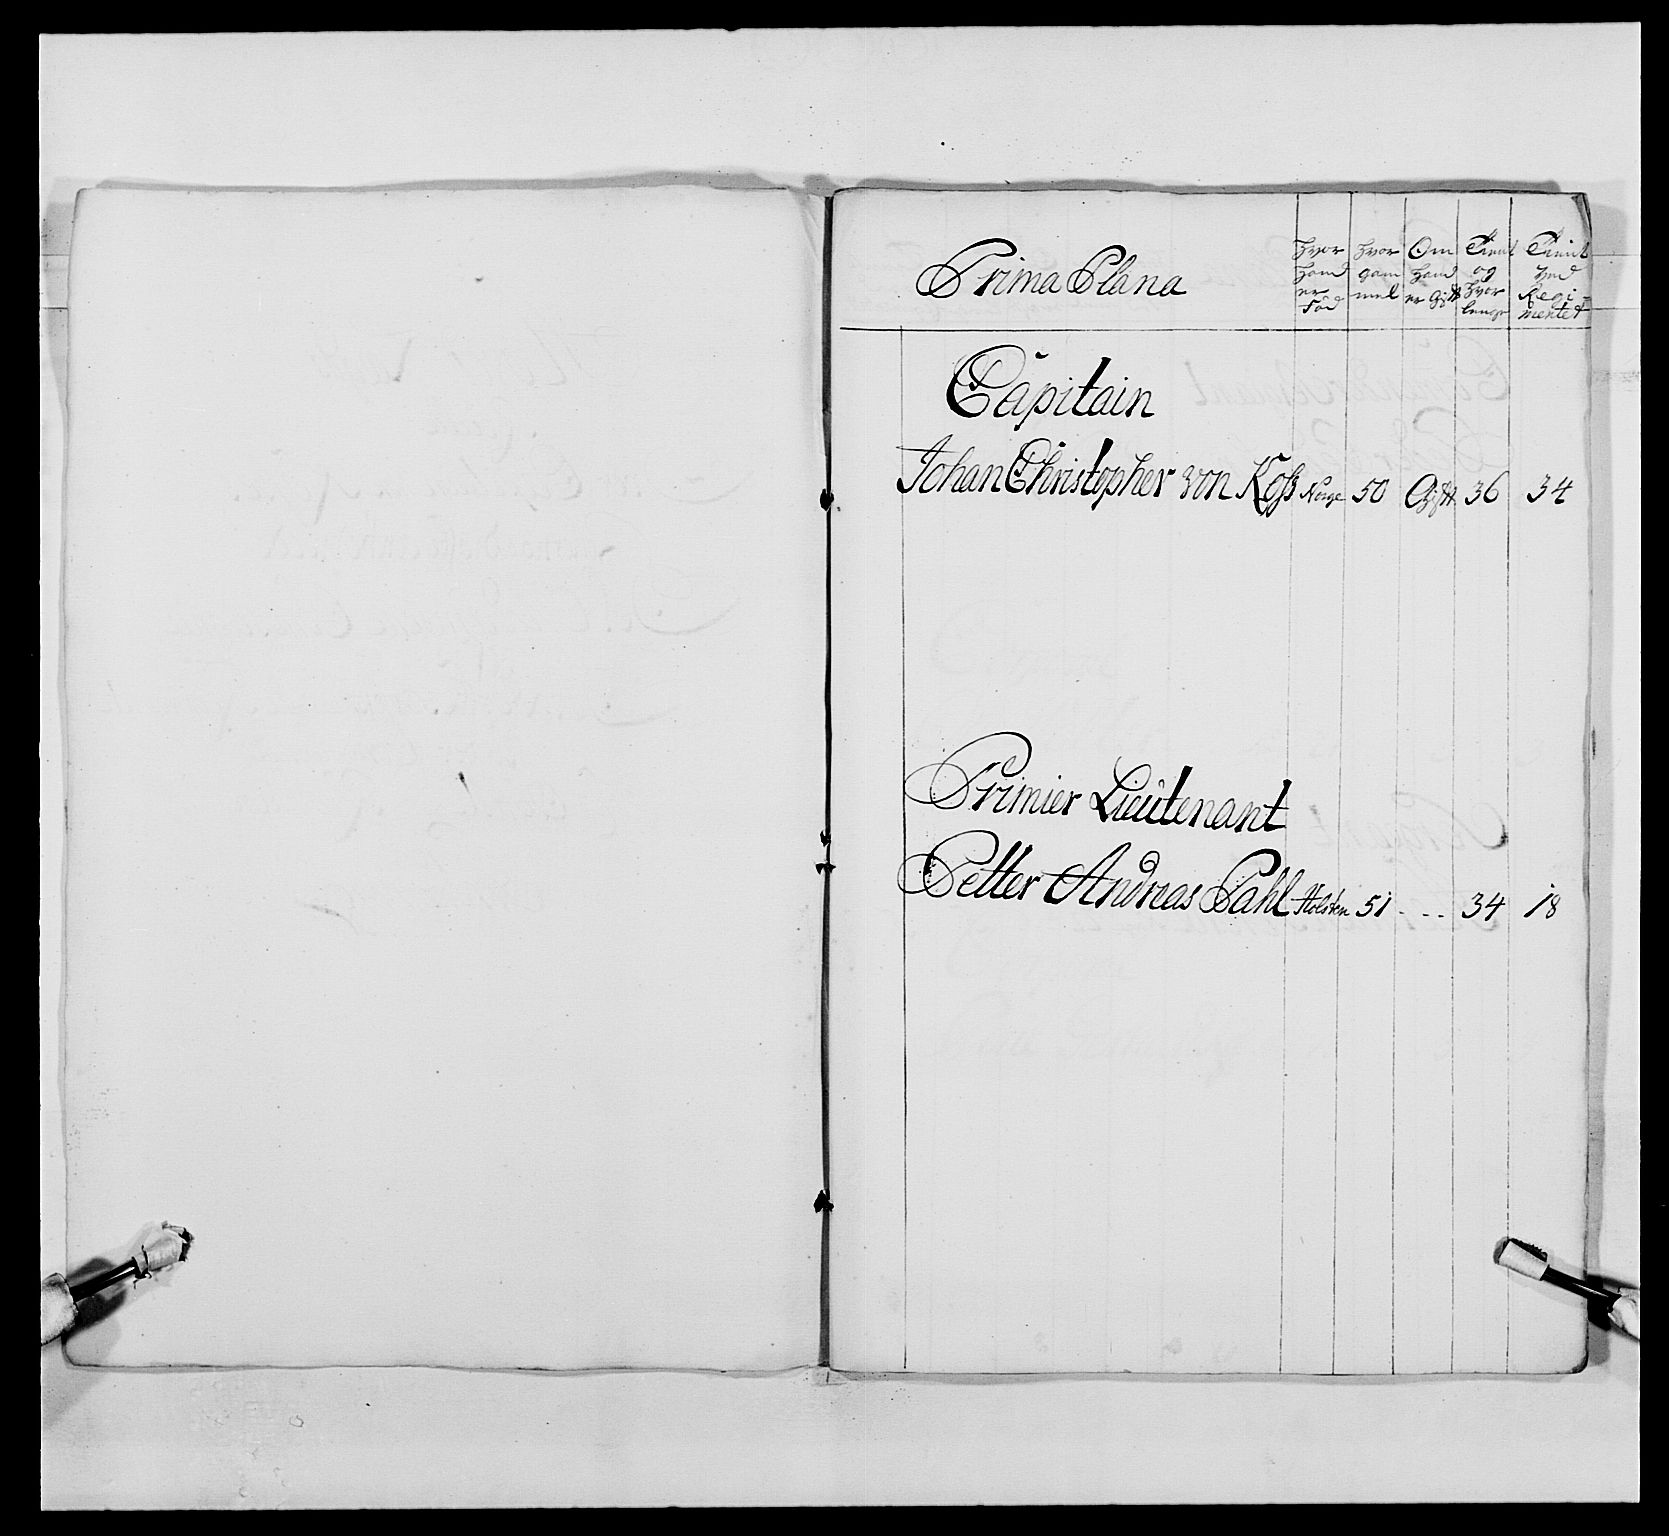 Prima Plana
hvor hand er Fód
hvor gam mel
Om hand er Gift
Tient og hvor lenge
Tient ved Regi- mentet
Capitain
Johan Christopher von Koss Norge 50 Gift 36 34
Primier Lieutenant
Petter Andreas Pahl Holsten 51 - - - 34 18